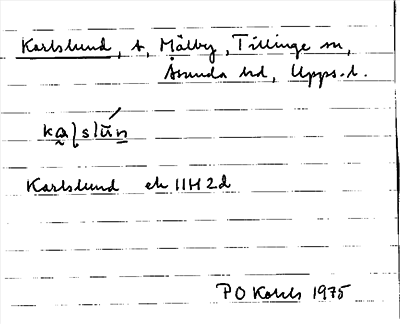 Karlslund, t, Mälby, Tillinge sn,
Åsunda hd, Upps. l.
Karlslund ek 11H2d
PO 1975